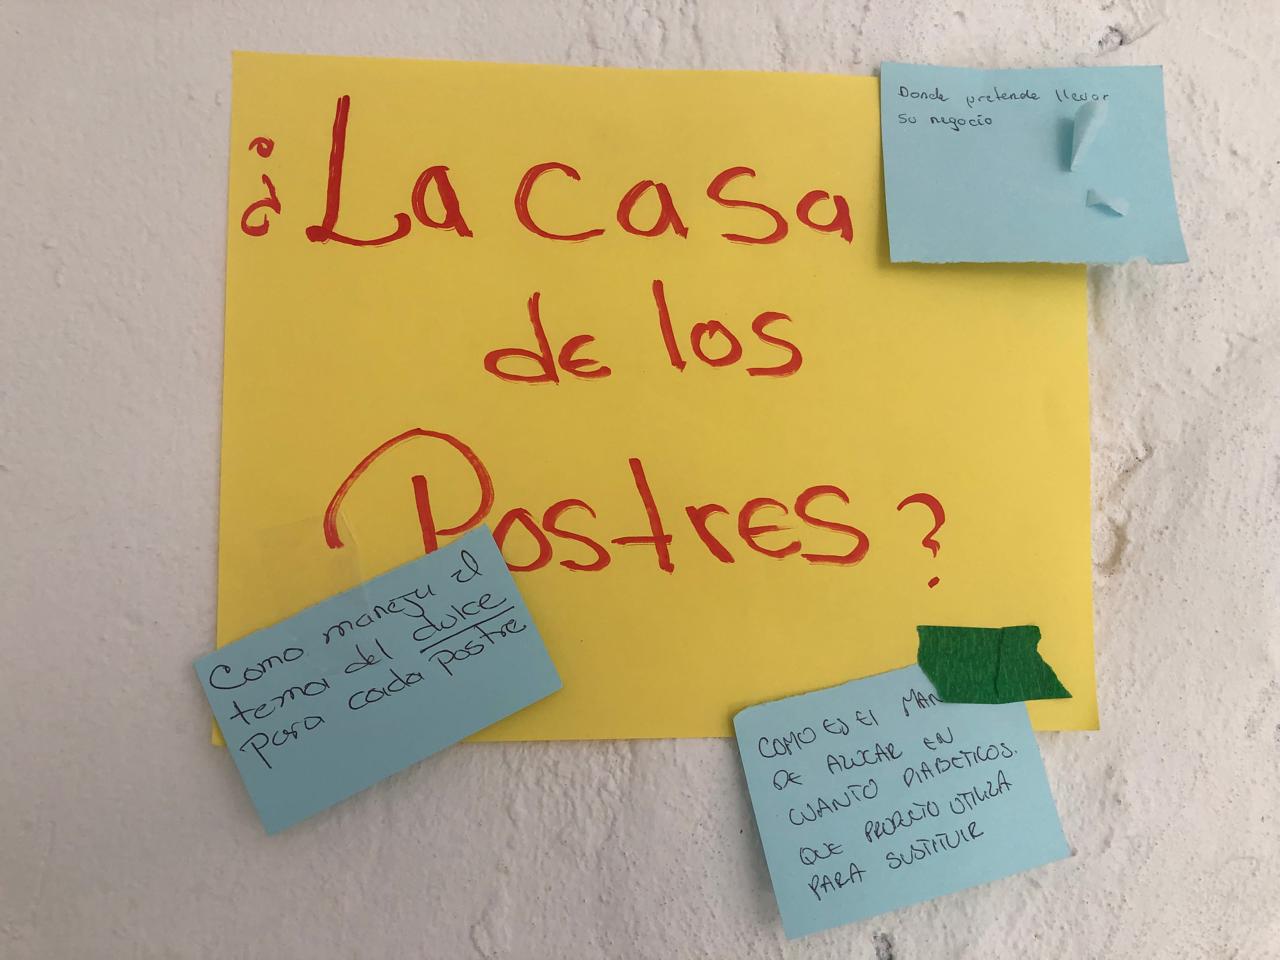 ¿La casa
de los
Postres?
Donde pretende llevar
su negocio
Como maneja el
tema del dulce
para cada postre
COMO ES EL
DE AZUCAR EN
CUANTO DIABETICOS.
QUE PRODCTO UTILIZA
PARA SUSTITUIR